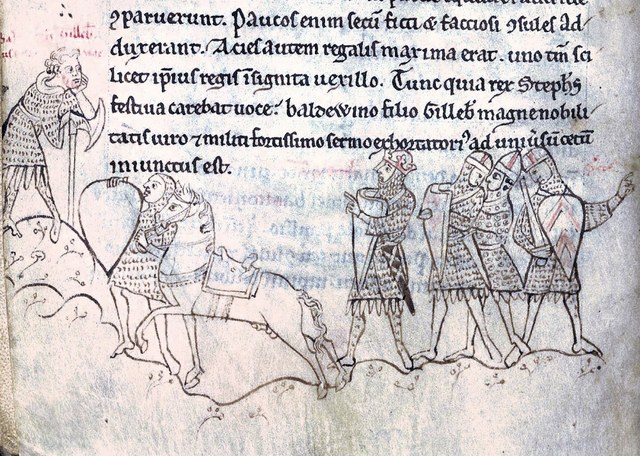 ꝯparuerunt. Paucos enim secū ficti & facciosi ꝯsules ad/
duxerant. Acies autem regalis maxima erat. uno tm̄ sci
licet ip̄ius regis īsignita uexillo. Tunc quia rex Stephs
festiua carebat uoce: baldewino filio Gilleb̄ magne nobili/
tatis uiro ⁊ militi fortissimo sermo exhortatori᷒ ad uniu̾sū cetū
iniunctus est.